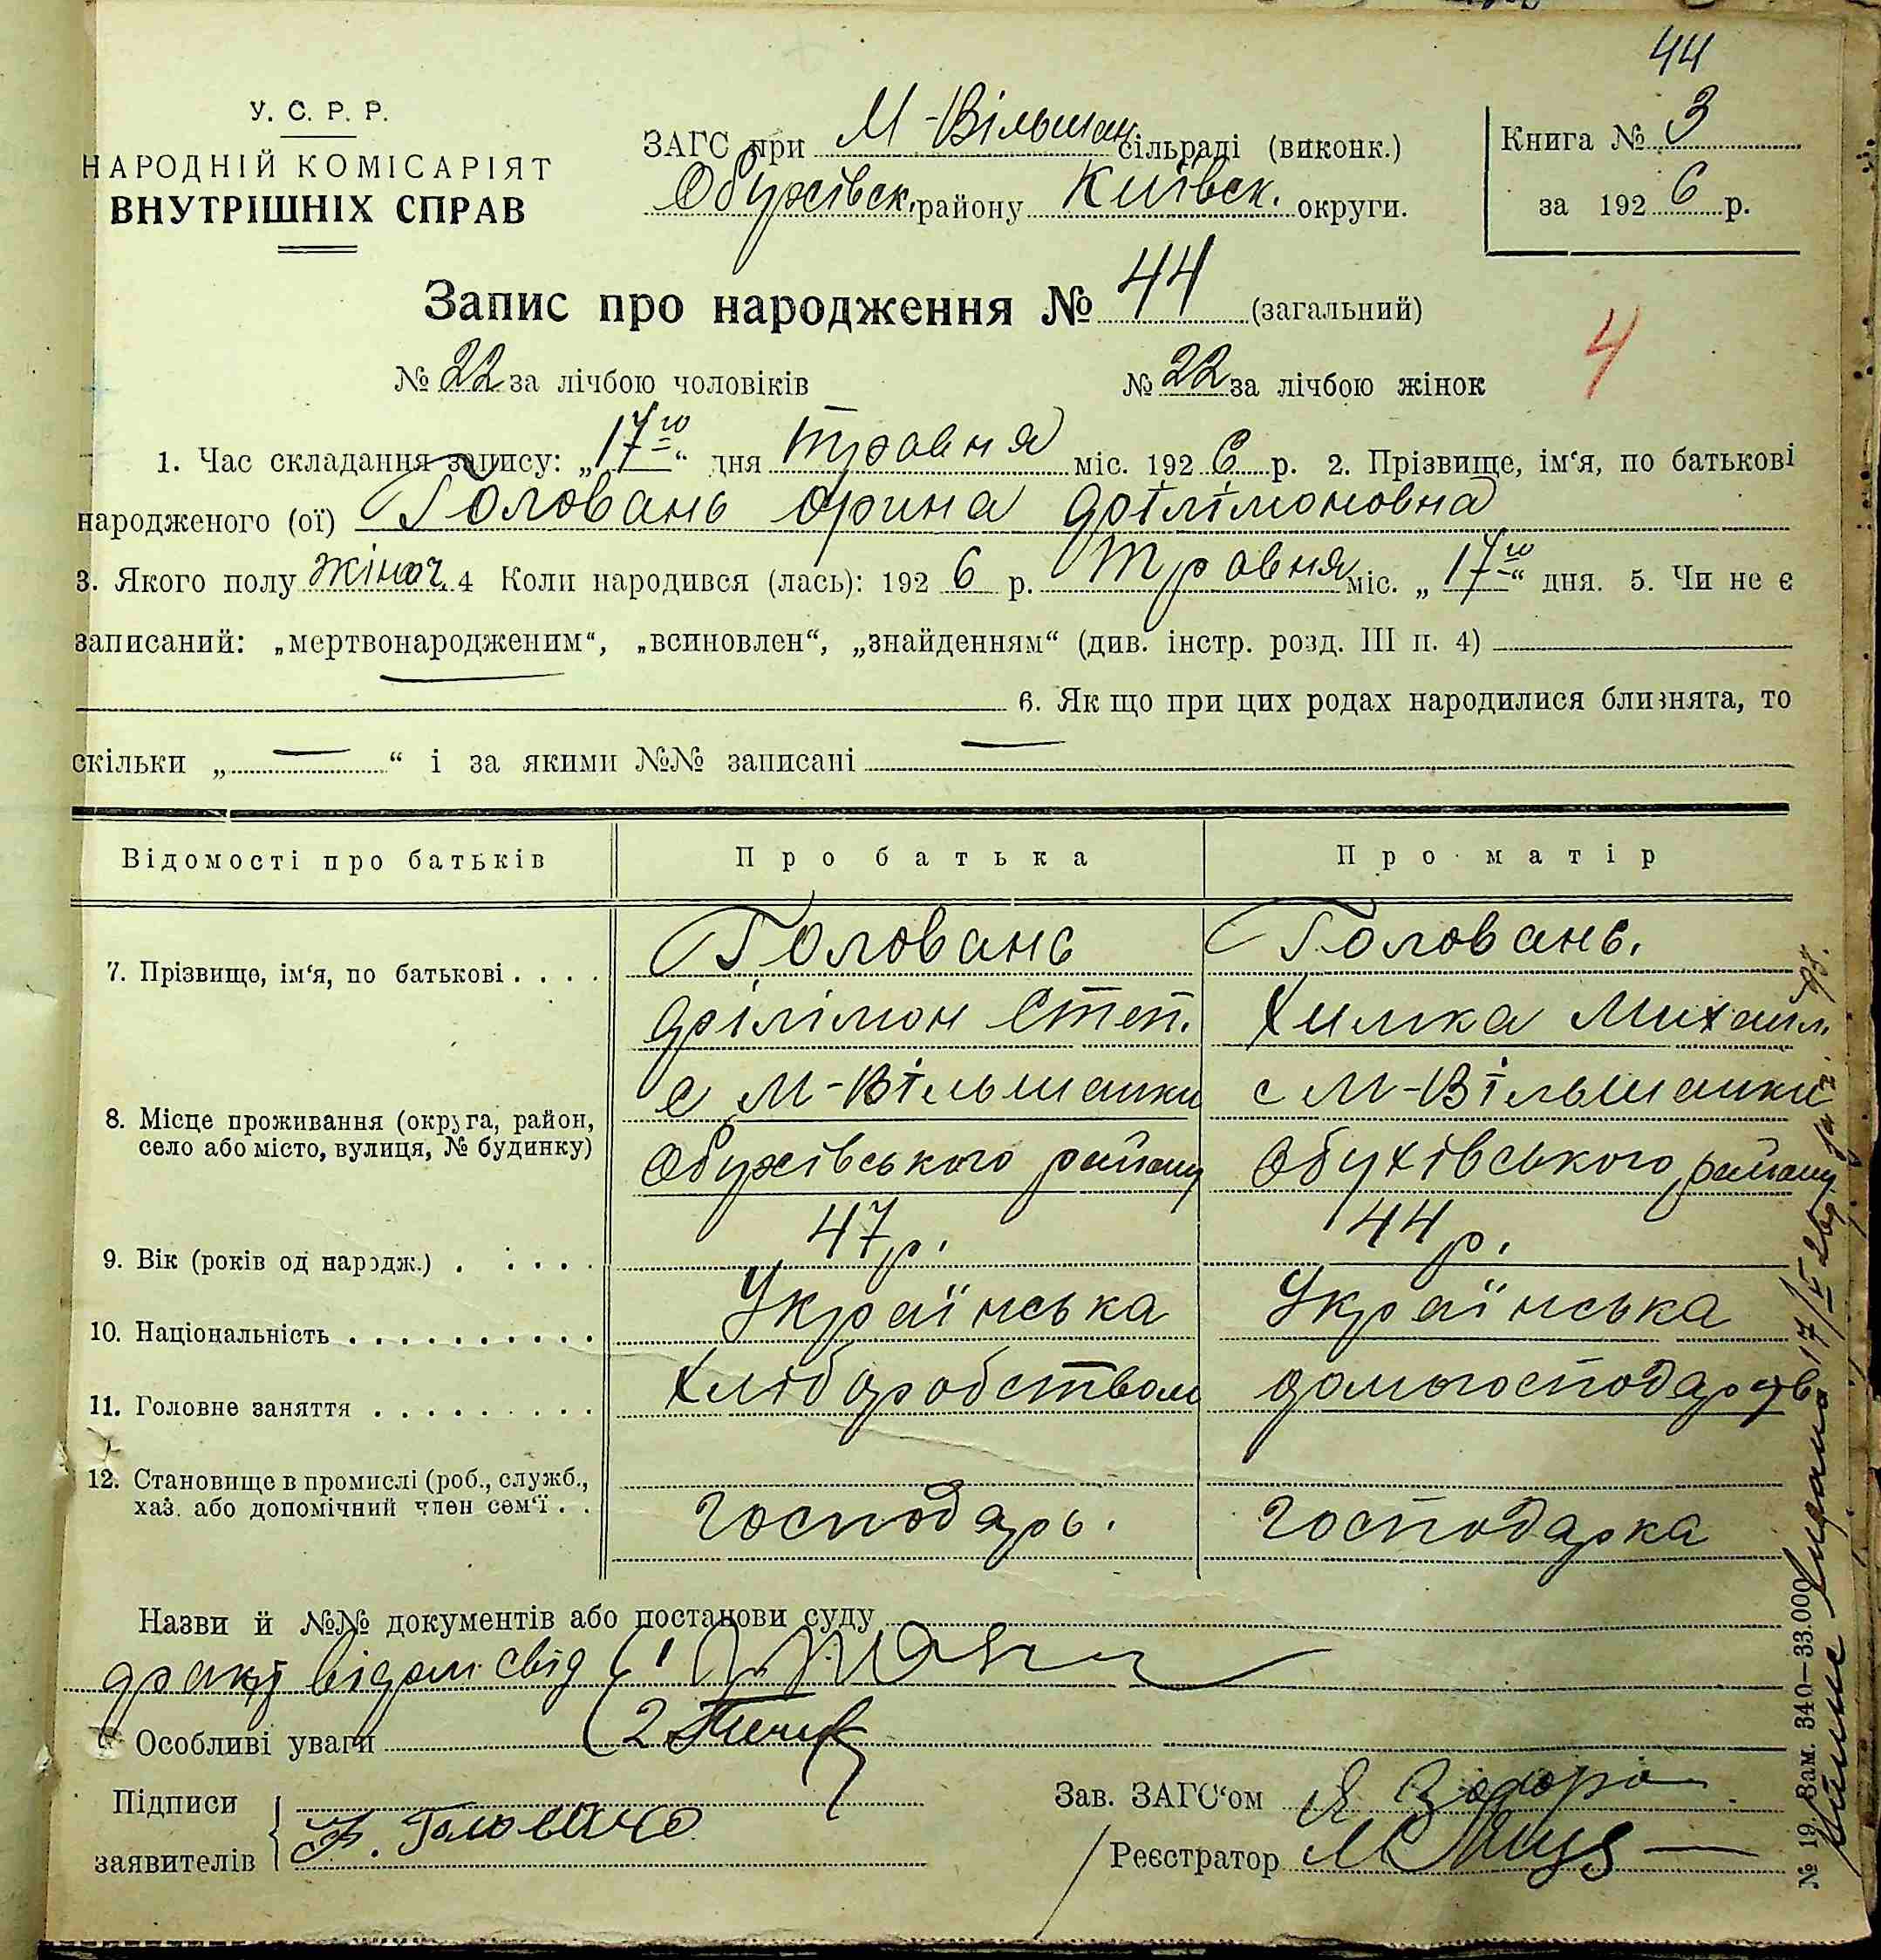 44
У. С. Р. Р.
НАРОДНІЙ КОМІСАРІЯТ
ВНУТРІШНІХ СПРАВ
ЗАГС при М-Вільшан сільраді (виконк.)
Обухівск. району Київск. округи.
Книга № 3
за 1926 р.
Запис про народження № 44 (загальний)
4
№ 22 за лічбою чоловіків № 22 за лічбою жінок
1. Час складання запису: „17го“ дня травня міс. 1926 р. 2. Прізвище, ім‘я, по батькові
народженого (ої) Головань Орина Філімоновна
3. Якого полу жіноч. 4 Коли народився (лась): 1926 р. травня міс. „17го“ дня. 5. Чи не є
записаний: „мертвонародженим“, „всиновлен“, „знайденням“ (див. інстр. розд. III п. 4)
6. Як що при цих родах народилися близнята, то
скільки „ — “ і за якими №№ записані —
Відомості про батьків Про батька Про матір
7. Прізвище, ім‘я, по батькові . . . . Головань Головань.
Філімон Степ. Химка Михайл.
8. Місце проживання (округа, район, село або місто, вулиця, № будинку) с М-Вільшанки с М-Вільшанки
Обухівського району Обухівського району
9. Вік (років од народж.) . . . . . 47 р. 44 р.
10. Національність . . . . . . . . . . Українська Українська
11. Головне заняття . . . . . . . . . Хлібаробством домогосподарств
12. Становище в промислі (роб., служб., хаз. або допомічний член сем‘ї . . Господарь. Господарка
Назви й №№ документів або постанови суду
факт відом свід (1
Особливі уваги (2
Підписи
заявителів Ф. Головань
Зав. ЗАГС‘ом Я
Реєстратор
№ 19 Зам. 340—33.000
17/V 26р.